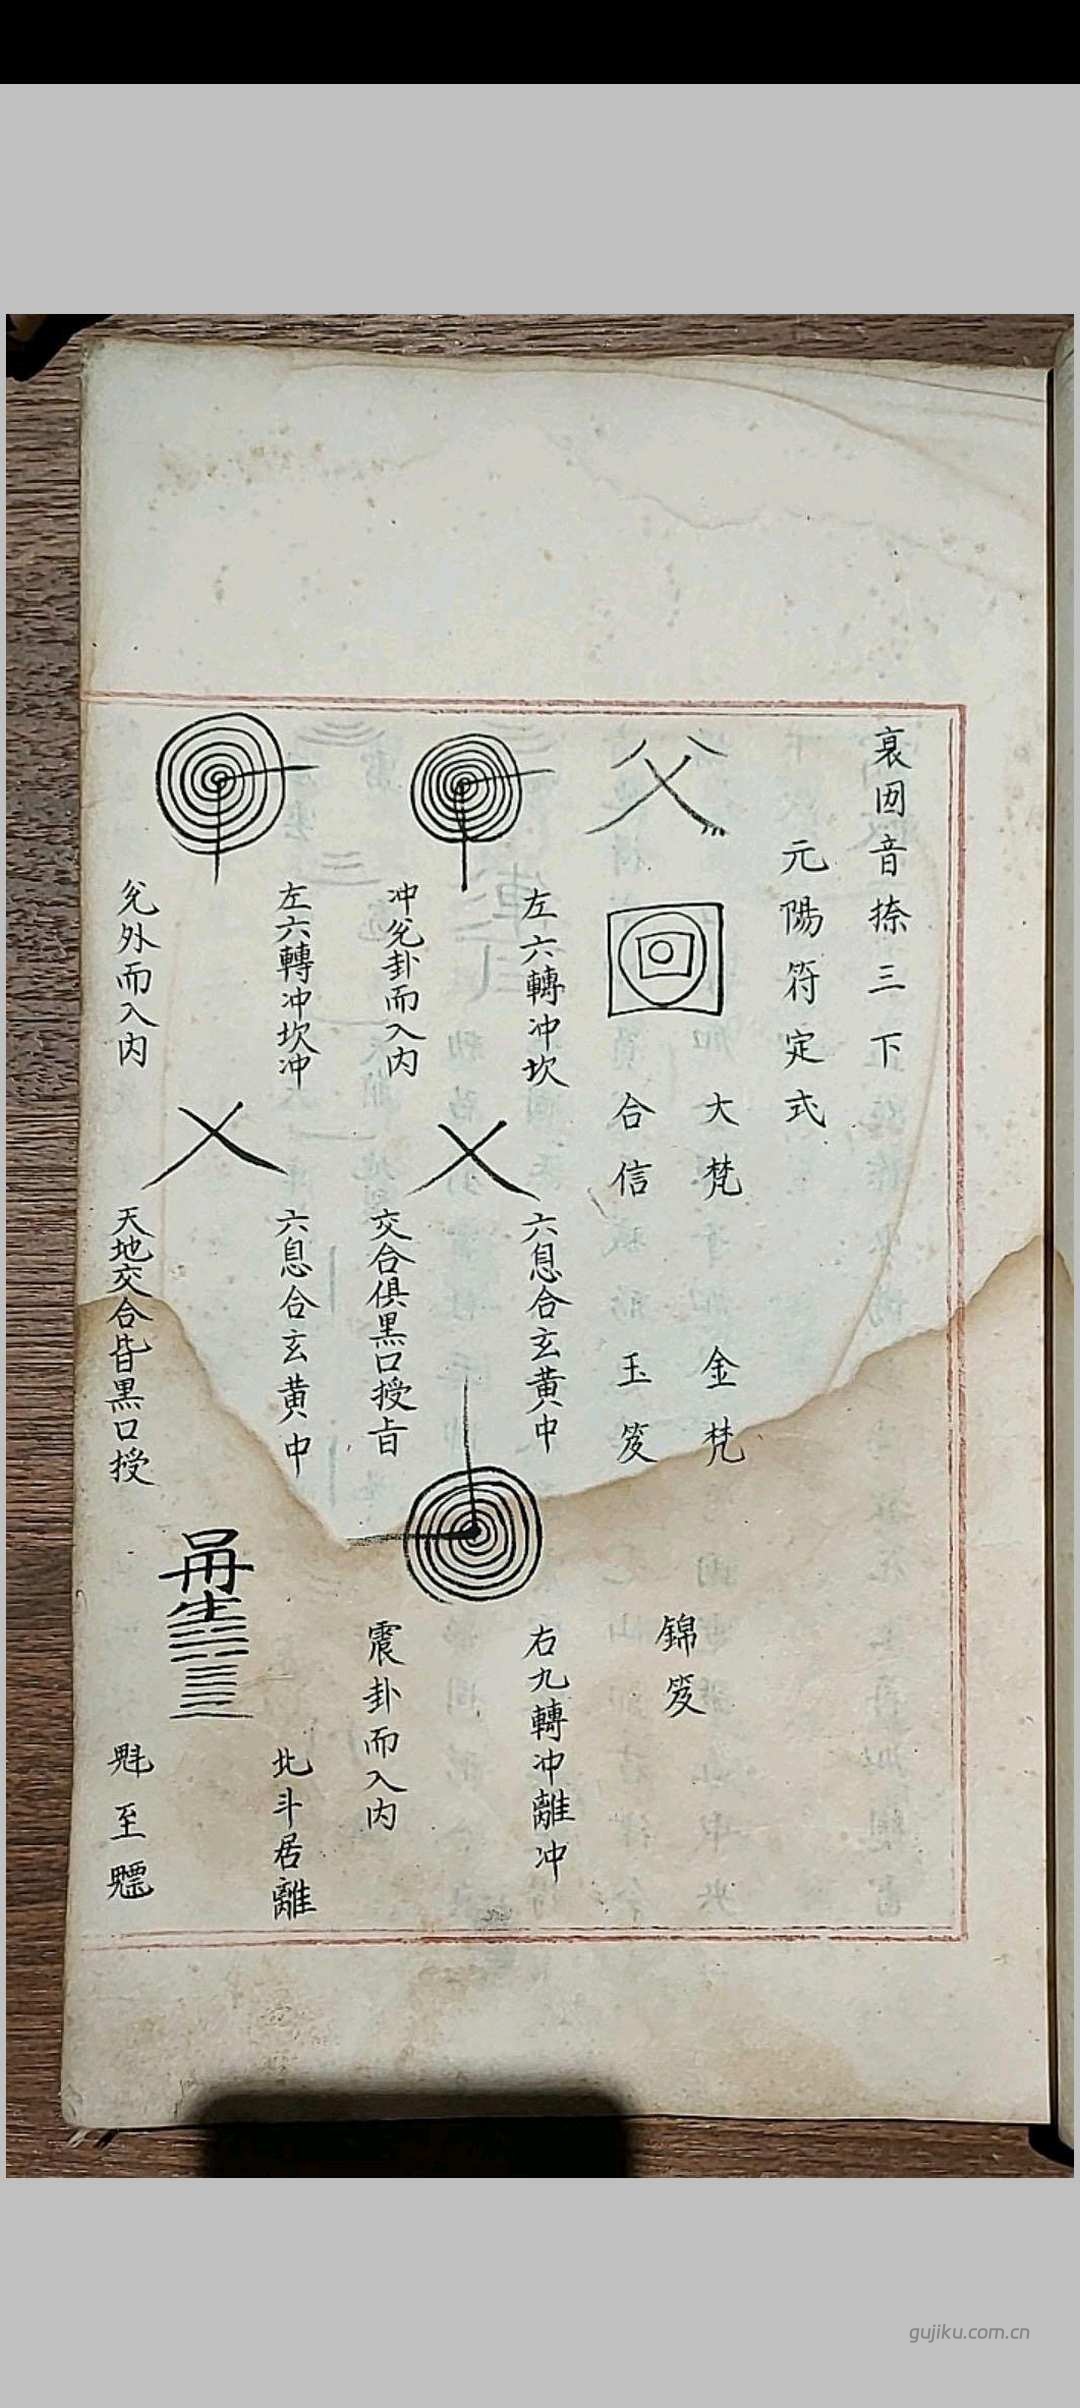 裒囦音捺三下
元陽符定式
大梵
金梵
合信
玉笈
錦笈
左六轉冲坎
冲兊卦而入内
六息合玄黄中
交合俱黑口授㫖
右九轉冲離冲
震卦而入内
左六轉冲坎冲
兊外而入内
六息合玄黄中
天地交合皆黒口授
北斗居離
魁至魒
gujiku.com.cn